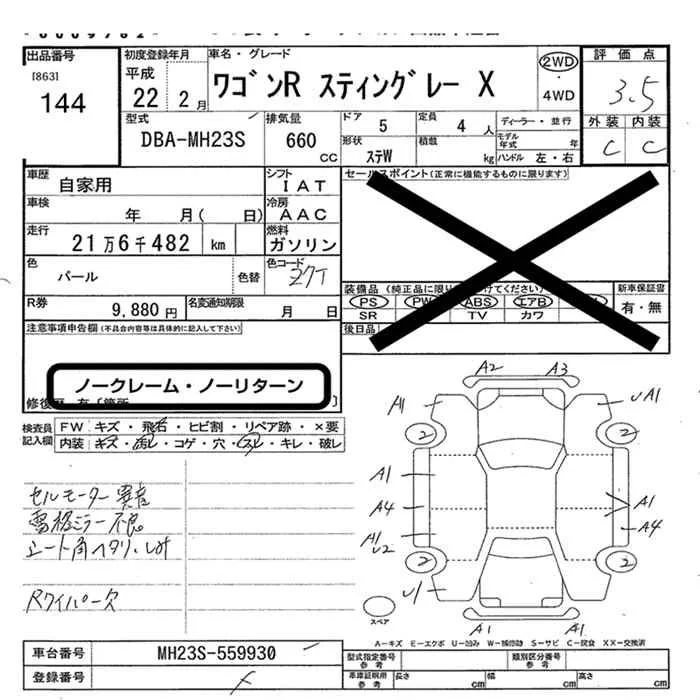 出品番号
[863]
144
初度登録年月
平成
22 2月
車名・グレード
ワゴンR スティングレー X
2WD
・
4WD
評価点
3.5
外装 内装
C C
型式
DBA-MH23S
排気量
660
CC
ドア
5
定員
4人
ディーラー・並行
モデル年式 年
形状
ステW
積載
kg
ハンドル 左・右
車歴
自家用
シフト
IAT
車検
年 月( 日)
冷房
AAC
走行
21万6千482 km
燃料
ガソリン
色
パール
色替
色コード
Z7T
R券
9,880円
名変通知期限
月 日
セールスポイント(正常に機能するものに限ります)
装備品(純正品に限り
ください)
新車保証書
有・無
PS PW ABS エアB
SR TV カワ
後日品
注意事項申告欄(不具合内容等は具体的に記入して下さい)
ノークレーム・ノーリターン
検査員
記入欄
FW キズ・飛石・ヒビ割・リペア跡・×要
内装 キズ・汚れ・コゲ・穴・スレ・キレ・破レ
セルモーター異音
電格ミラー不良
シート角ヘタリ・
Rワイパー欠
A2 A3
A1 UA1
2 2
A1
A4
A1
U2
A1
A4
2 2
U1
A1 A1
スペア
A－キズ E－エクボ U－凹み W－補修跡 S－サビ C－腐食 XX－交換済
車台番号
MH23S-559930
登録番号
型式指定番号
参考
類別区分番号
参考
車庫証明用
参考
長さ cm
幅 cm
高さ cm